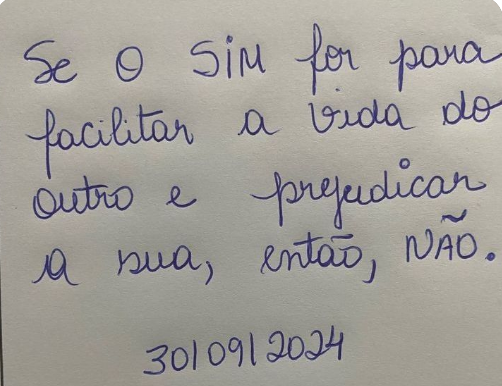 Se o SiM for para
facilitar a vida do
outro e prejudicar
a sua, então, NÃO.
30/09/2024